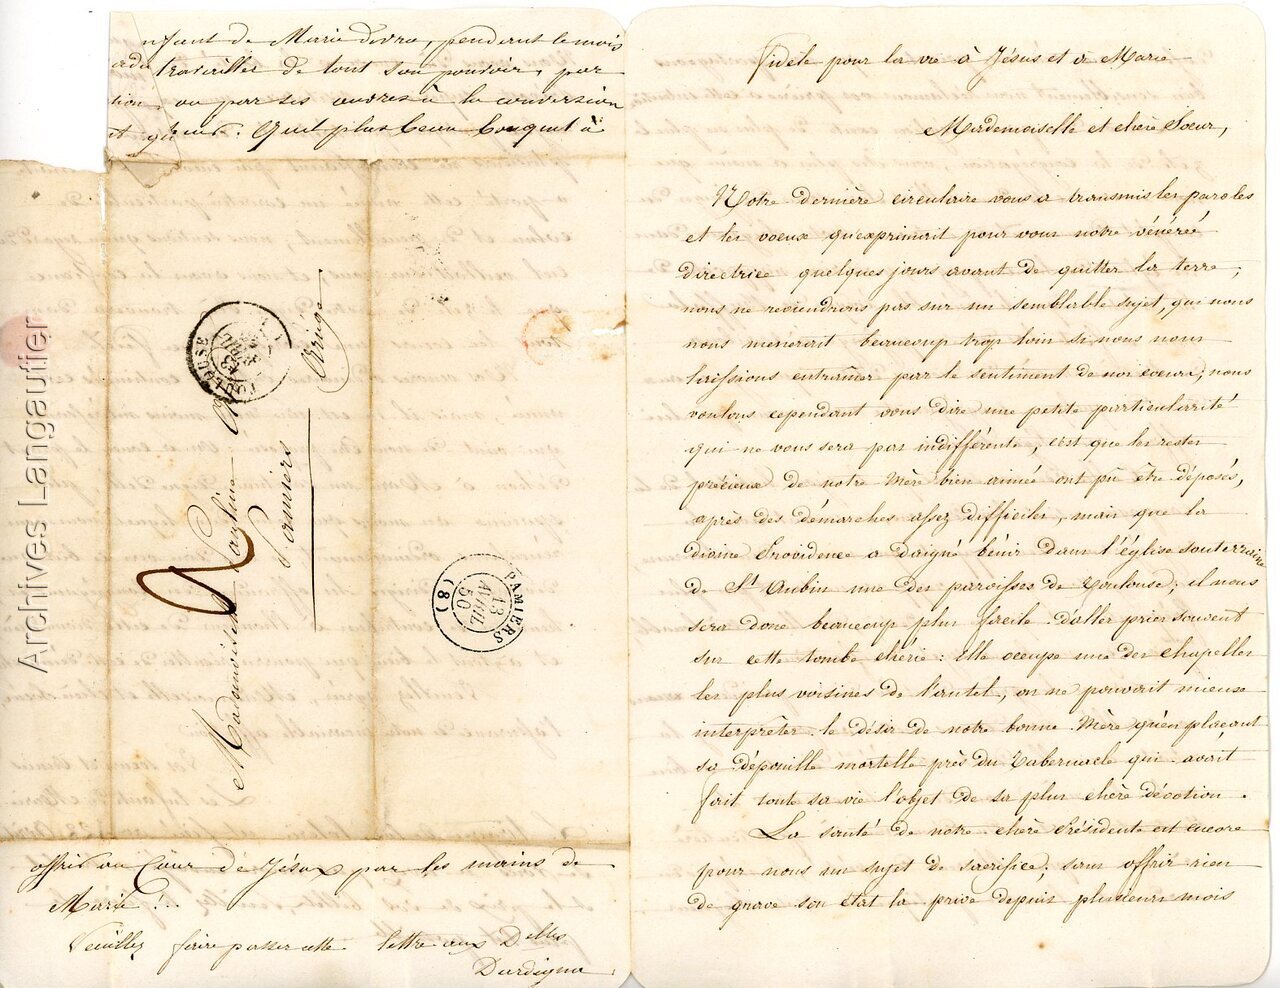 Fidèle pour la vie à Jésus et à Marie
Mademoiselle et chère Soeur,
Notre dernière circulaire vous a transmis les paroles
et les voeux qu'exprimait pour vous notre vénérée
directrice quelques jours avant de quitter la terre,
nous ne reviendrons pas sur un semblable sujet, qui nous
nous mènerait beaucoup trop loin si nous nous
laissions entraîner par le sentiment de nos coeurs; nous
voulons cependant vous dire une petite particularité
qui ne vous sera pas indifférente, c'est que les restes
précieux de notre Mère bien aimée ont pû être déposés,
après des démarches assez difficiles, mais que la
divine Providence a daigné bénir dans l'église souterraine
de St Aubin une des paroisses de Toulouse; il nous
sera donc beaucoup plus facile d'aller prier souvent
sur cette tombe chérie: Elle occupe une des chapelles
les plus voisines de l'autel, on ne pouvait mieux
interprêter le désir de notre bonne Mère qu'en plaçant
sa dépouille mortelle près du Tabernacle qui avait
fait toute sa vie l'objet de sa plus chère dévotion.
La santé de notre chère Présidente est encore
pour nous un sujet de sacrifice; sans offrir rien
de grave son état la prive depuis plusieurs mois
nfant de Marie devra, pendant le mois
travailler de tout son pouvoir, par
tion, ou par ses oeuvres à la conversion
Quel plus beau bouquet à
offrir au Coeur de Jésus par les mains de
Marie!..
Veuillez faire passer cette lettre aux Delles
Durdigna
Mademoiselle Pauline
Pamiers
Ariège
2
TOULOUSE
AVRIL
PAMIERS
13
AVRIL
50
(8)
Archives Langautier